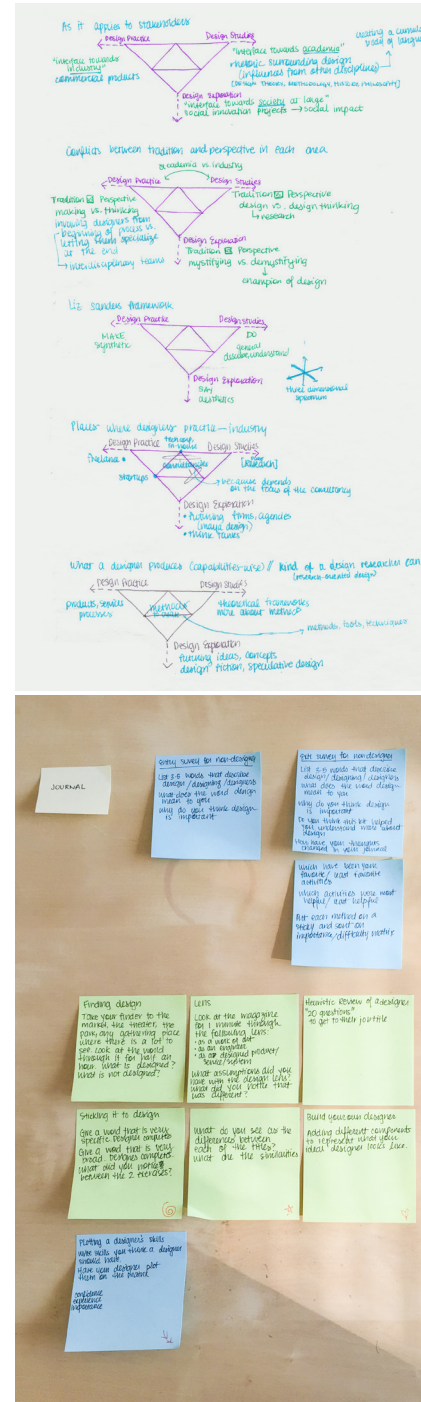 As it applies to stakeholders
Design Practice
Design Studies
"interface towards industry"
commercial products
"interface towards academia"
rhetoric surrounding design
(influences from other disciplines)
[DESIGN THEORY, METHODOLOGY, HISTORY, PHILOSOPHY]
creating a
body of
Design Exploration
"interface towards society at large"
social innovation projects → social impact
Conflicts between tradition and perspective in each area
academia vs. industry
Design Practice
Design Studies
Tradition Perspective
making vs. thinking
involving designers from
beginning of process vs.
letting them specialize
at the end
→ interdisciplinary teams
Tradition Perspective
design vs. design thinking
research
Design Exploration
Tradition Perspective
mystifying vs. demystifying
champion of design
Liz Sanders framework
Design Practice
Design Studies
MAKE
synthetic
DO
general
Design Exploration
SAY
aesthetics
three dimensional
spectrum
Places where designers practice — industry
Design Practice
in-house
Design Studies
freelance
startups
consultancies
[research]
because depends
on the focus of the consultancy
Design Exploration
futuring firms, agencies
(maya design)
think tanks
What a designer produces (capabilities-wise) // kind of a design researcher can
(research-oriented design)
Design Practice
Design Studies
products, services
processes
methods
theoretical frameworks
more about methods
methods, tools, techniques
Design Exploration
futuring ideas, concepts
design fiction, speculative design
JOURNAL
Entry survey for non-designers
List 3-5 words that describe
design/designing/designers
What does the word design
mean to you
Why do you think design
is important
Exit survey for non-designer
List 3-5 words that describe
design/designing/designers
What does the word design
mean to you
Why do you think design
is important
Do you think this kit helped
you understand more about
design
How have your thoughts
changed in your journal
Which have been your
favorite/least favorite
activities
Which activities were most
helpful/not helpful
Put each method on a
and sort on
importance/difficulty matrix
Finding design
Take your finder to the
market, the theater, the
park, any gathering place
where there is a lot to
see. Look at the world
through it for half an
hour. What is designed?
What is not designed?
Lens
Look at the magazine
for 1 minute through
the following lens:
• as a work of art
• as an engineer
• as a designed product/
service/system
What assumptions did you
have with the design lens?
What did you notice that
was different?
Heuristic Review of a designer
"20 questions"
to get to their job title
Sticking it to design
Give a word that is very
specific. Designer completes
Give a word that is very
broad. Designer completes
What did you notice
between the 2 exercises?
What do you see as the
differences between
each of the titles?
What are the similarities
Build your own designer
Adding different components
to represent what your
ideal designer looks like.
Plotting a designer's skills
Write skills you think a designer
should have
Have your designer plot
them on the
confidence
experience
importance